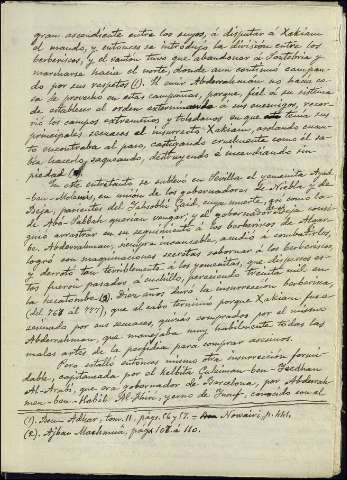 gran ascendiente entre los suyos, á disputar á Xakiam
el mando, y entonces se introdujo la división entre los
berberiscos, y el santón tuvo que abandonar á Sortebria y
marcharse hacia el norte, donde aun continuó campan-
do por sus respetos (1). El emir Abderrahman no hacía co-
sa de provecho en estas campañas, porque, fiel á su sistema
de establecer el orden exterminando á sus enemigos, recor-
rió los campos extremeños y toledanos en que tenía sus
principales secuaces el insurrecto Xakiam, asolando cuan-
to encontraba al paso, castigando cruelmente como él sa-
bía hacerlo, saqueando, destruyendo é incendiando sin
piedad
En este entretanto se sublevó en Sevilla el yemenita Ayad-
ben-Molamis, en unión de los gobernadores de Niebla y de
Beja, parientes del Yahsobi Çaid, cuya muerte, así como la
de Abu-Çabbah querían vengar, y el gobernador de Beja consi-
guió arrastrar en su seguimiento á los berberiscos de Algar-
be. Abderrahman, siempre incansable, acudió á combatirlos,
logró con maquinaciones secretas sobornar á los berberiscos,
y derrotó tan terriblemente á los yemenitas, que dispersos es-
tos fueron pasados á cuchillo, pereciendo treinta mil en
la hecatombe (2). Diez años duró la insurrección berberisca,
(del 768 al 777), que al cabo terminó porque Xakiam fue a-
sesinado por sus secuaces, quizás comprados por el mismo
Abderrahman, que manejaba muy hábilmente todas las
malas artes de la perfidia para comprar asesinos.
Pero estalló entonces mismo otra insurrección formi-
dable, capitaneada por el kelbita Culeiman-ben-Yecdhan
Al-Arabi, que era gobernador de Barcelona, por Abderrah-
man-ben-Habib Al-Fihri, yerno de Yusuf, conocido con el
(1). Ben Adhari, tom. II, pags. 56 y 57. = Nowairi, p. 441.
(2). Ajbar Machmuâ, pags 108 á 110.